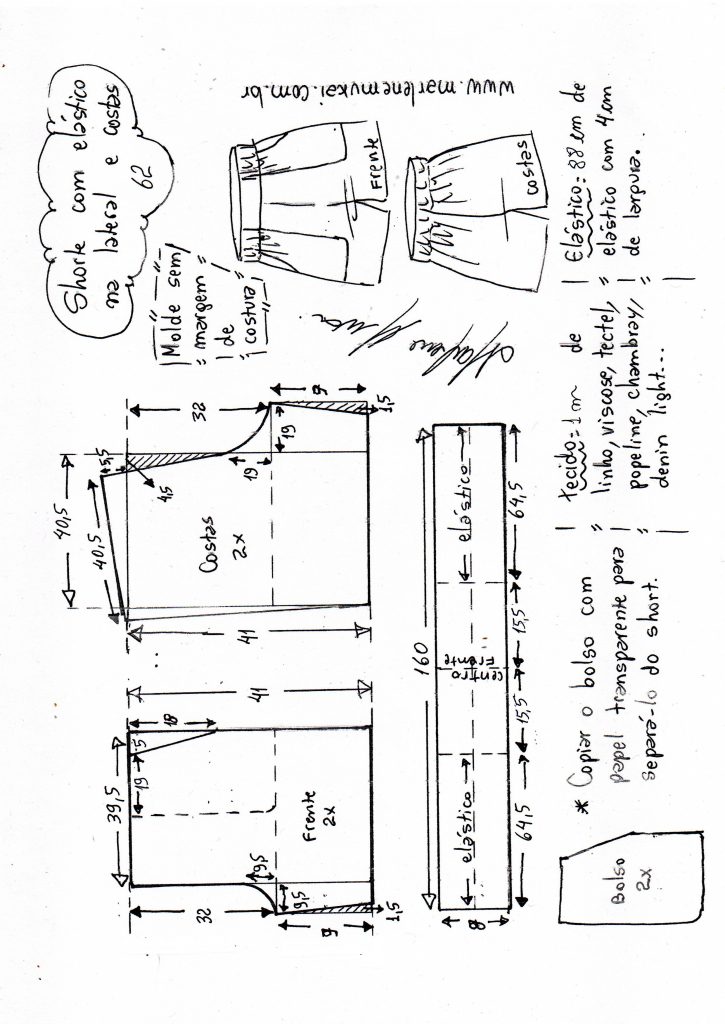 Shorte com elástico
na lateral e costas
62
www.marlenemukai.com.br
Frente
costas
Molde sem
margem
de
costura
40,5
40,5
5,5
4,5
32
19
19
9
1,5
Costas
2x
41
41
39,5
18
5
19
Frente
2x
9,5
9,5
32
9
1,5
160
elástico
elástico
centro
Frente
64,5
15,5
15,5
64,5
8
Elástico: 88 cm de
elástico com 4 cm
de largura.
Tecido = 1 m de
linho, viscose, tectel,
popeline, chambray,
denin light...
* Copiar o bolso com
papel transparente para
separá-lo do short.
Bolso
2x